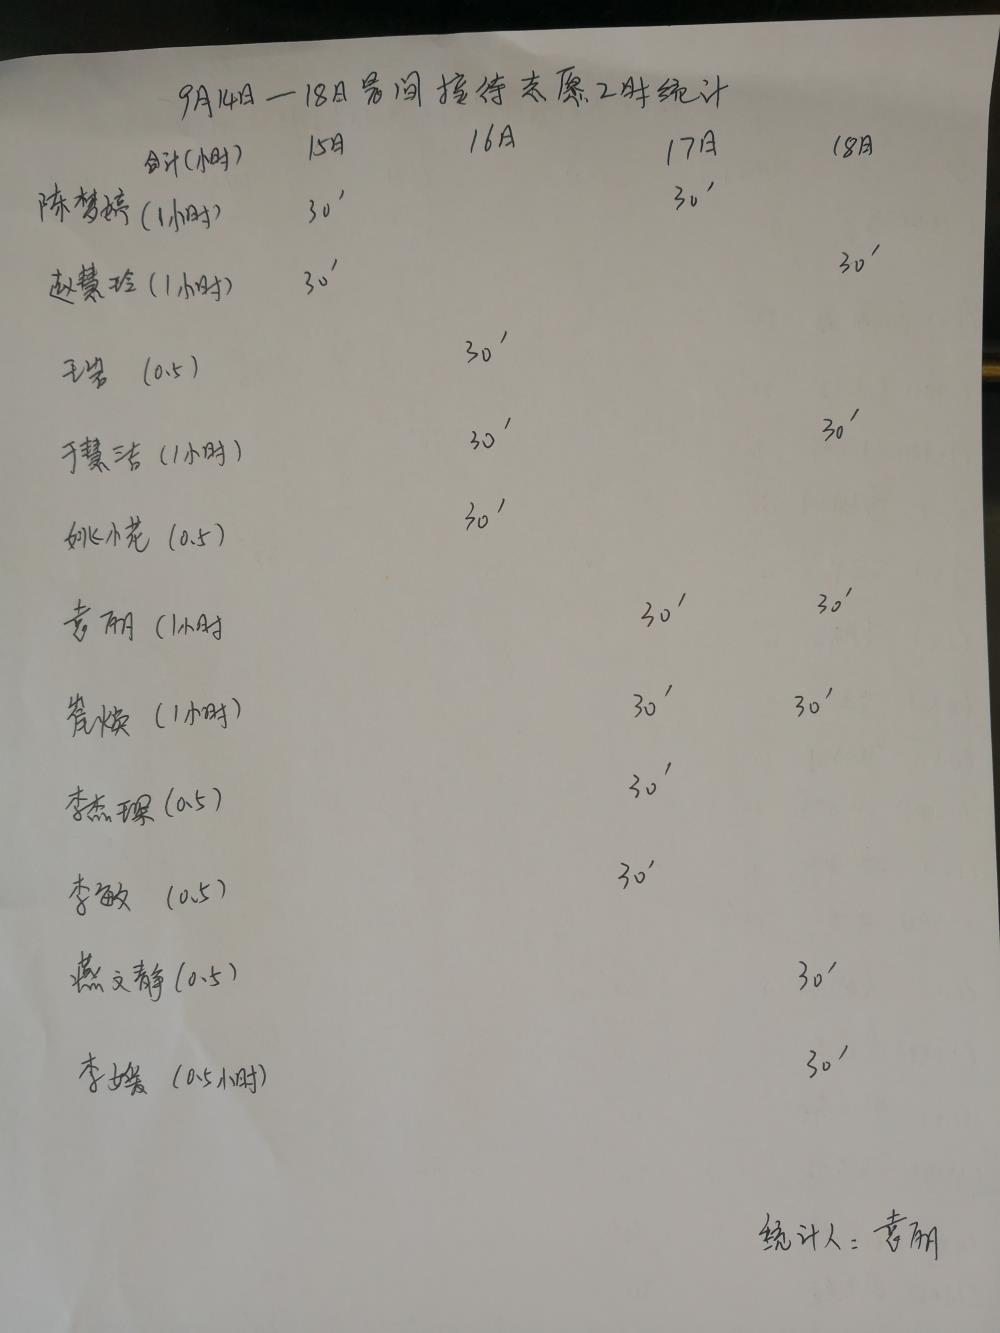 9月14日—18日晨间接待志愿工时统计
合计(小时) 15日 16日 17日 18日
陈梦婷(1小时) 30′ 30′
赵慧玲(1小时) 30′ 30′
王岩 (0.5) 30′
于慧洁(1小时) 30′ 30′
姚小花(0.5) 30′
袁丽(1小时 30′ 30′
崔焕(1小时) 30′ 30′
李杰琛(0.5) 30′
李敏 (0.5) 30′
燕文静(0.5) 30′
李媛 (0.5小时) 30′
统计人：袁丽